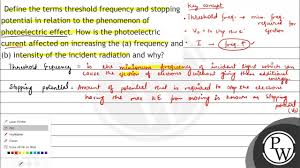 Define the terms threshold frequency and stopping
potential in relation to the phenomenon of
photoelectric effect. How is the photoelectric
current affected on increasing the (a) frequency and
(b) intensity of the incident radiation and why?
Key concept
Threshold freq. → min. freq.
required for
V₀ = to stop
I → freq ↑
Threshold frequency = is the minimum frequency of incident light which can
cause the ejection of electrons without giving them additional
energy.
Stopping potential = Amount of potential that is required to stop the electrons
having the max KE from moving is known as stopping
P
W